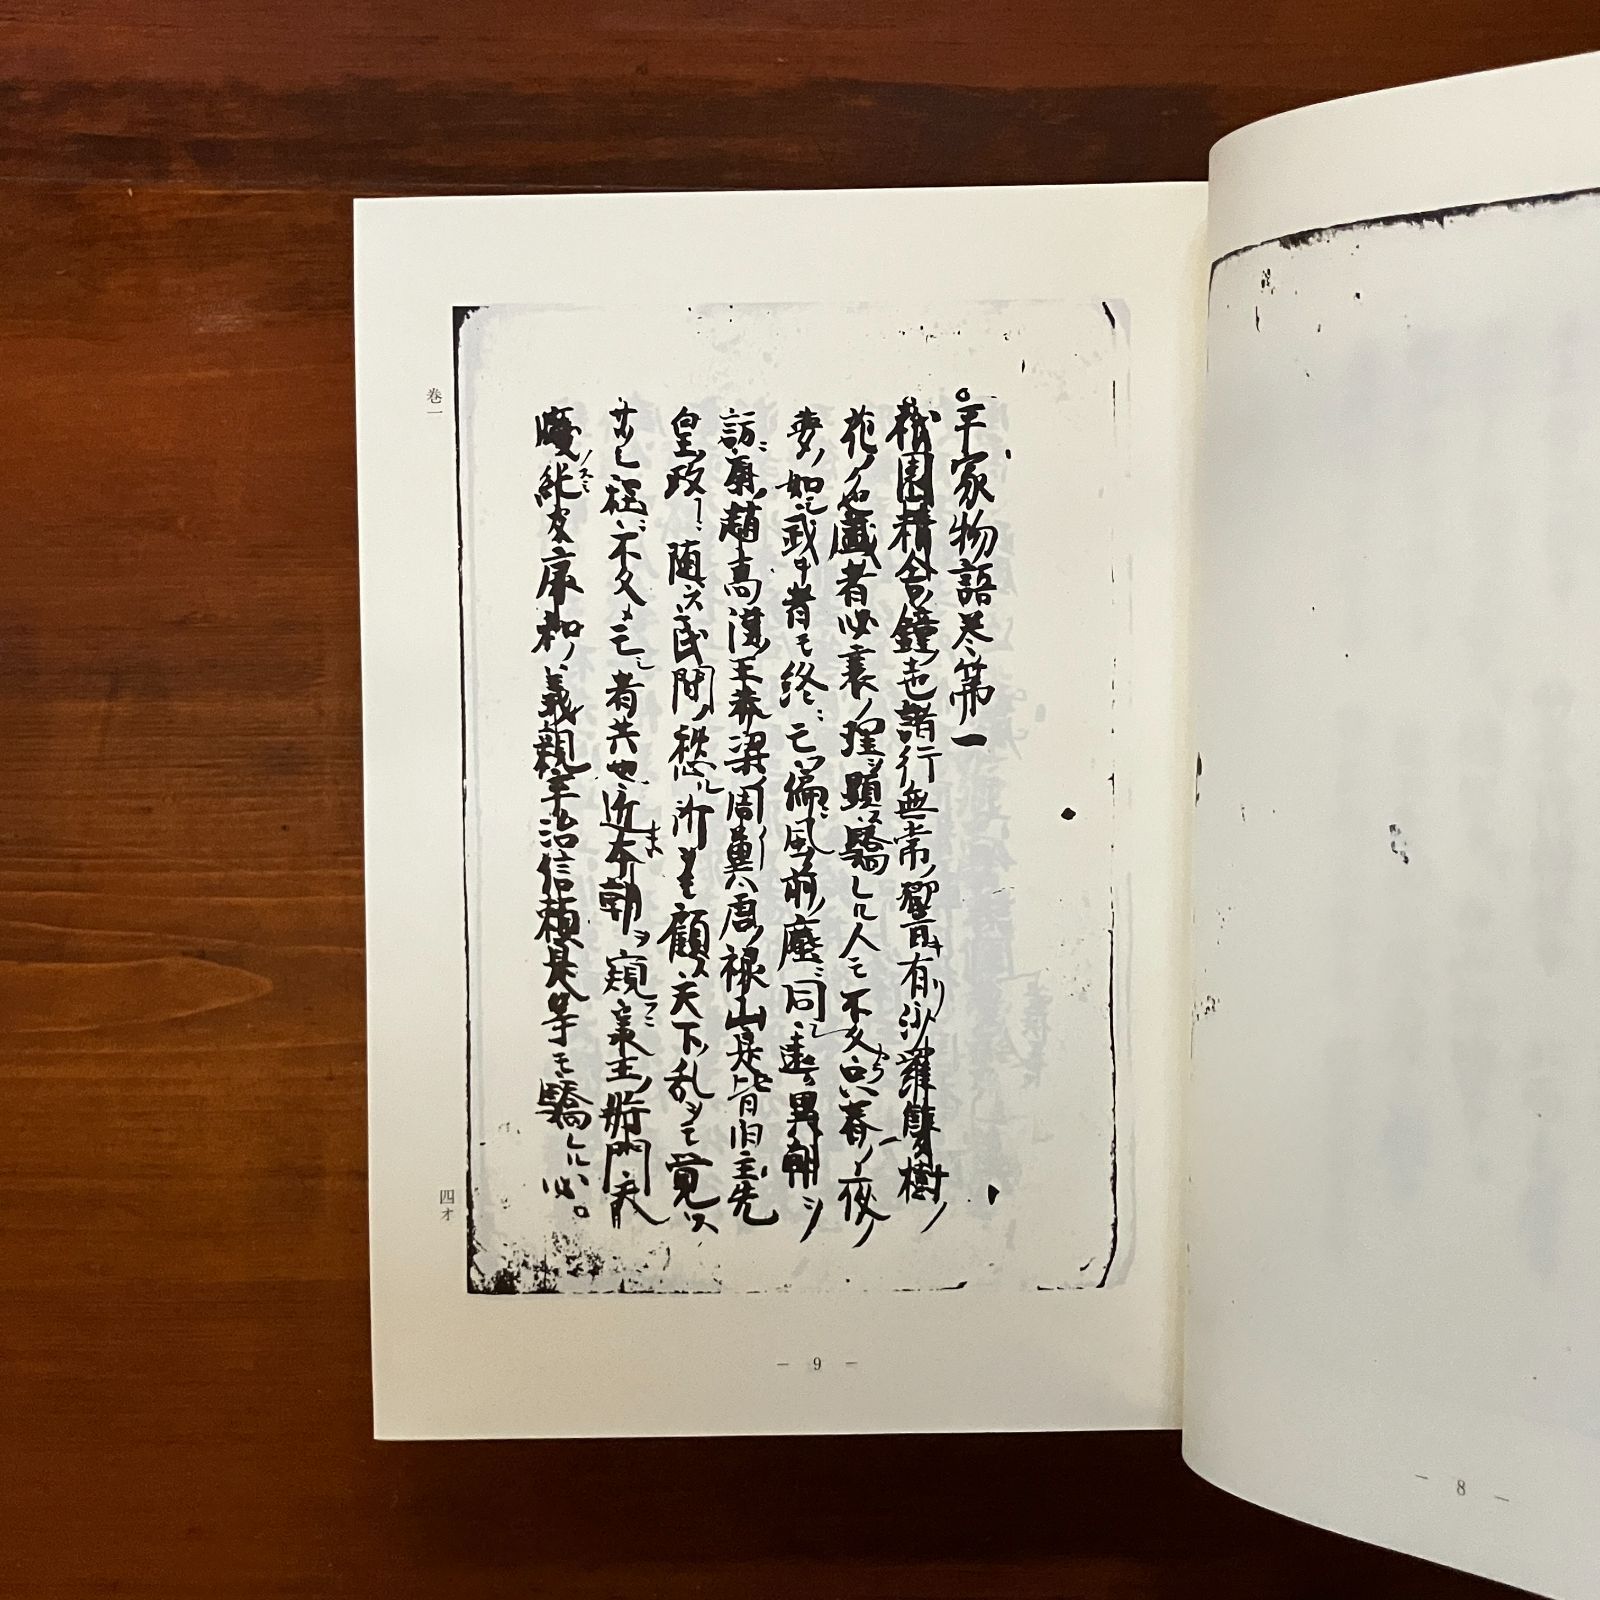 平家物語巻第一
祇園精舎ノ鐘ノ声諸行無常ノ響有沙羅雙樹ノ
花ノ色盛者必衰ノ理ヲ顕ス驕レル人モ不久只春ノ夜ノ
夢ノ如シ武キ者モ終ニ亡偏風ノ前ノ塵ニ同シ遠異朝
訪ニ秦趙高漢王莽梁周異唐禄山是皆旧主先
皇政ニ随ハス民間ノ愁ル所ヲモ顧ス天下ノ乱ヲモ覚ス
シ程ニ不久シテ亡シ者共也近本朝ヲ窺ニ承平ノ将門天
慶純友康和ノ義親平治信頼是等モ驕レル心
巻一
四オ
— 9 —
— 8 —